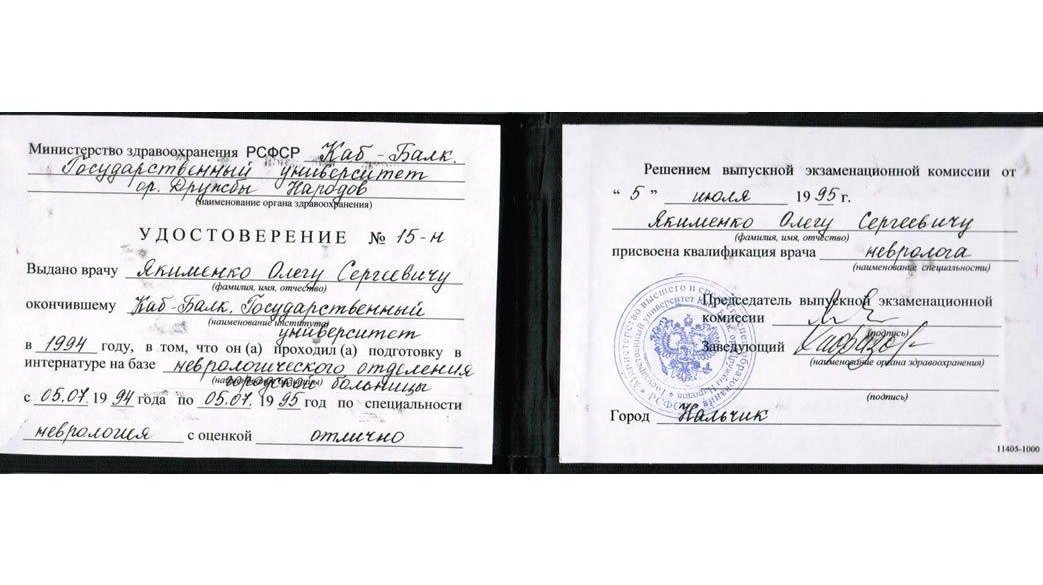 Министерство здравоохранения РСФСР Каб-Балк.
Государственный университет
ор. Дружбы Народов
(наименование органа здравоохранения)
УДОСТОВЕРЕНИЕ № 15-н
Выдано врачу Якименко Олегу Сергеевичу
(фамилия, имя, отчество)
окончившему Каб-Балк. Государственный
(наименование института)
университет
в 1994 году, в том, что он (а) проходил (а) подготовку в
интернатуре на базе неврологического отделения
городской больницы
с 05.07. 19 94 года по 05.07. 19 95 год по специальности
неврология с оценкой отлично
Решением выпускной экзаменационной комиссии от
“ 5 ” июля 19 95 г.
Якименко Олегу Сергеевичу
(фамилия, имя, отчество)
присвоена квалификация врача невролога
(наименование специальности)
Председатель выпускной экзаменационной
комиссии
(подпись)
Заведующий
(наименование органа здравоохранения)
(подпись)
Город Нальчик
11405-1000